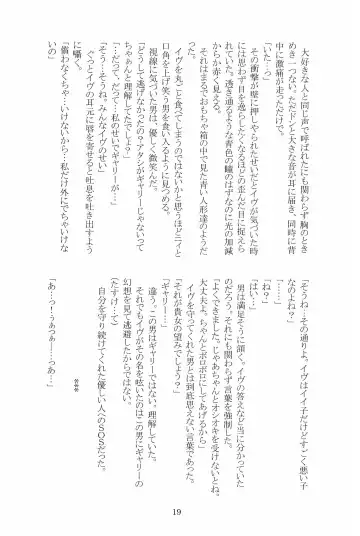 大好きな人と同じ声で呼ばれたにも関わらず胸のとき
めき一つない。ただドンと大きな音が耳に届き、同時に背
中に激痛が走っただけで。
「いた…っ」
その衝撃が壁に押しやられたせいだとイヴが気づいた時
には思わず目を逸らしたくなるほどの歪んだ目に捉えら
れていた。透き通るような青色の瞳のはずなのに光の加減
からか赤く見える。
それはまるでおもちゃ箱の中で見た青い人形達のようだ
った。
イヴを丸ごと食べてしまうのではないかと思うほどニイと
口角を上げ笑う男を食い入るように見つめる。
視線に気づいた男は、優しく微笑んだ。
「どうして逃げなかったの？アタシがギャリーじゃないって
ちゃぁんと理解してたでしょ？」
「…だって…だって…私のせいでギャリーが…」
「そう…そうね、みんなイヴのせい」
ぐっとイヴの耳元に唇を寄せると吐息を吐き出すよう
に囁く。
「償わなくちゃ…いけないから…私だけ外にでちゃいけな
いの」
「そうね…その通りよ。イヴはイイ子だけどすごく悪い子
なのよね？」
「……」
「ね？」
「はい…」
男は満足そうに頷く。イヴの答えなど当に分かっていた
のだろう。それにも関わらず言葉を強制した。
「よくできました。じゃあちゃんとオシオキを受けないとね。
大丈夫よ。ちゃんとボロボロにしてあげるから」
イヴを守ってくれた男とは到底思えない言葉であった。
「それが貴女の望みでしょう？」
「ギャリー…」
違う。この男はギャリーではない。理解していた。
それでもイヴがその名を呟いたのはこの男にギャリーの
幻想を見て逃避したからではない。
(たすけて)
自分を守り続けてくれた優しい人へのSOSだった。
***
「あ…っ！うぁあぁ…っあ…」
19